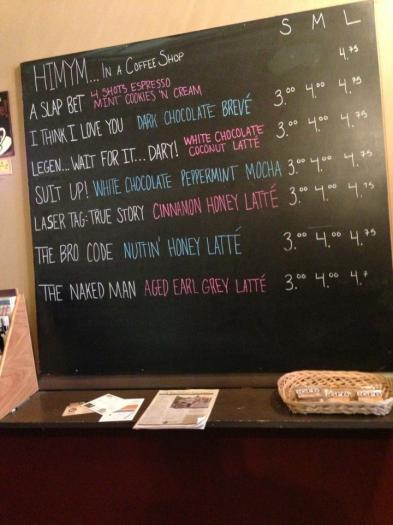 S M L
HIMYM... IN A COFFEE SHOP
A SLAP BET 4 SHOTS ESPRESSO MINT COOKIES 'N CREAM 4.75
I THINK I LOVE YOU DARK CHOCOLATE BREVÉ 3.00 4.00 4.75
LEGEN...WAIT FOR IT...DARY! WHITE CHOCOLATE COCONUT LATTÉ 3.00 4.00 4.75
SUIT UP! WHITE CHOCOLATE PEPPERMINT MOCHA 3.00 4.00 4.75
LASER TAG: TRUE STORY CINNAMON HONEY LATTÉ 3.00 4.00 4.75
THE BRO CODE NUTTIN' HONEY LATTÉ 3.00 4.00 4.75
THE NAKED MAN AGED EARL GREY LATTÉ 3.00 4.00